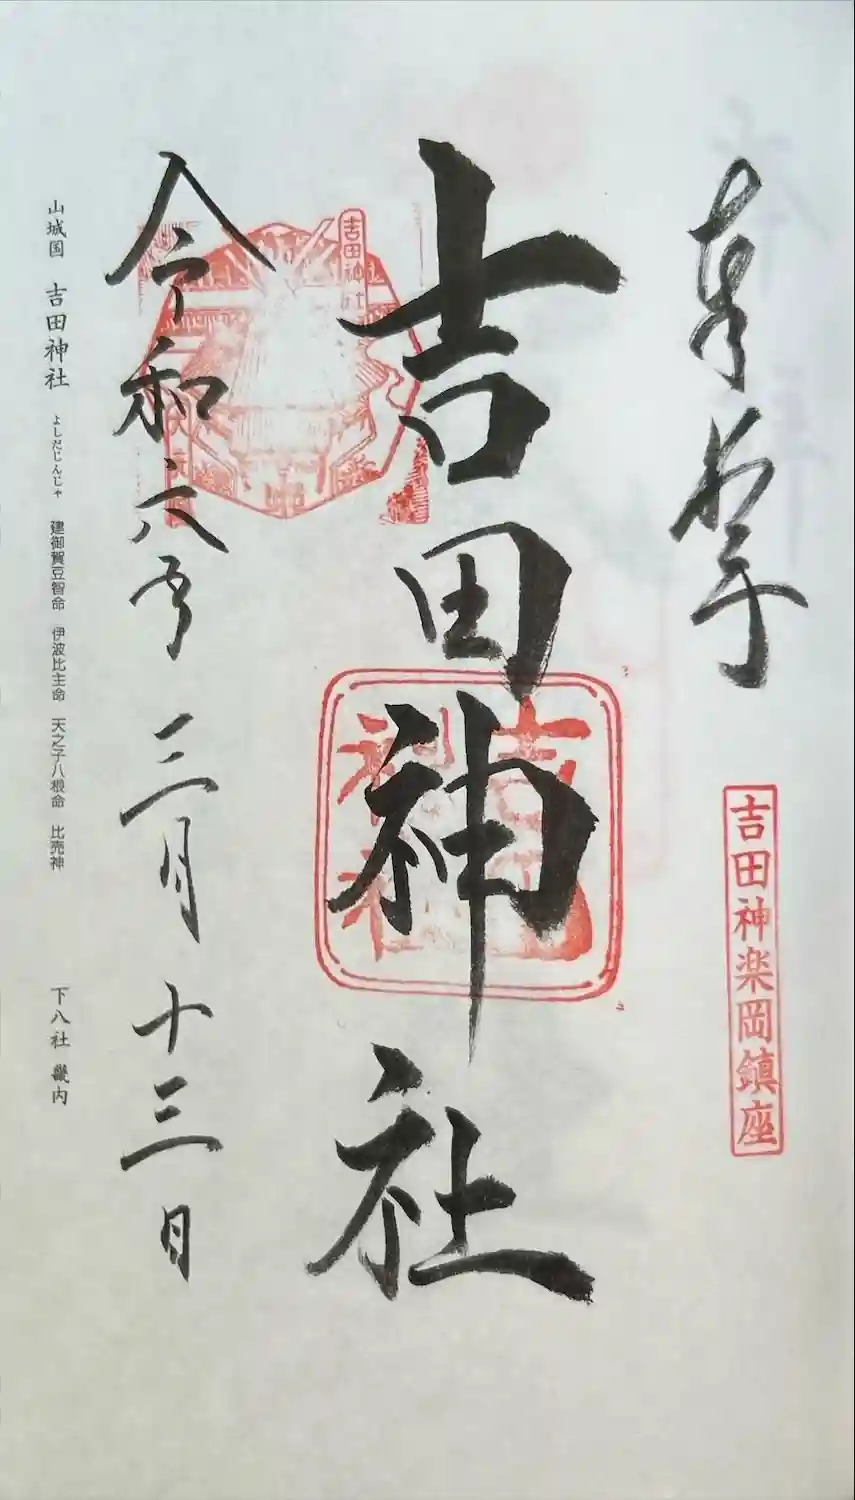 奉拝
吉田神楽岡鎮座
吉田神社
吉田神社
吉田神社
令和六年三月十三日
山城国 吉田神社 よしだじんじゃ 建御賀豆智命 伊波比主命 天之子八根命 比売神 下八社 畿内